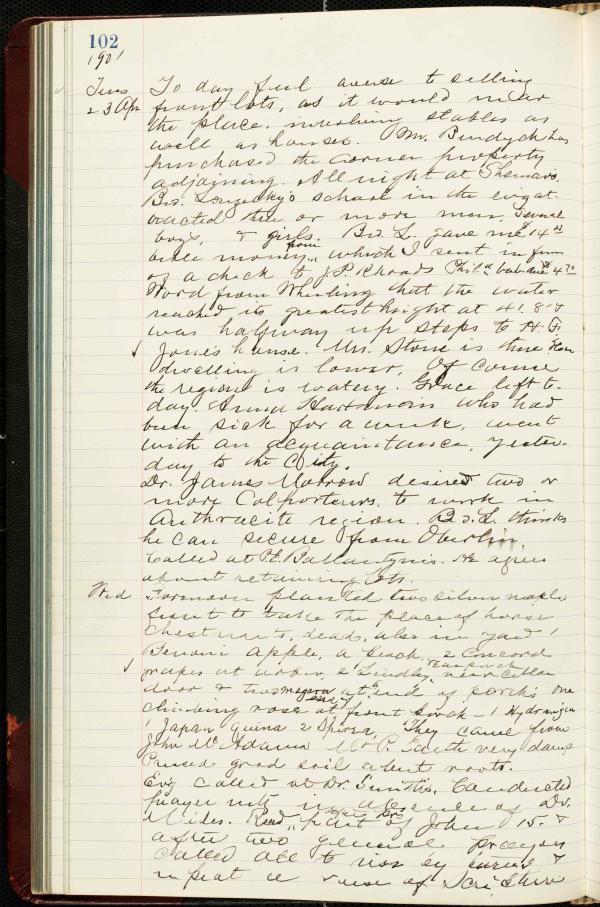 102
1901
Tues To day feel averse to selling
23 Apr front lots, as it would injure
the place, involving stables as
well as houses. Mr. Burdych has
purchased the corner property
adjoining. All night at
Bro. school in the evg at-
tracted three or more men, several
boys, & girls. Bro. L. gave me $14
bible money, which I sent in form
of a check to J. P. Rhoads Phila
Word from Wheeling that the water
reached its greatest height at 41.8 &
was halfway up steps to H. F.
Jones house. Mrs. Stone is there Her
dwelling is lower. Of course
the region is watery. Grace left to-
day. Anna who had
been sick for a week, went
with an acquaintance, yester-
day to the City.
Dr. James Morrow desired two or
more Colporteurs, to work in
Anthracite region. Bro. L. thinks
he can secure from Oberlin.
Called at P.E. Ballantyne's. He agrees
about retaining lots.
Wed Forenoon planted two silver maples
front to take the place of horse
chestnuts, deads, also in yard 1
Benoni apple, a peach, 2 Concord
grapes at arbor, 2 Lindley rear porch near Cellar
door & two Niagara at end of porch; one
climbing rose at front porch - 1 Hydrangea
1 Japan Quince 2 Spirea, They came from
John Mc Adams Mt P. Earth very damp
Caused good soil about roots.
Evg called at Dr. Smith's. Conducted
prayer mtg in absence of Dr.
Mides. Read part of John 15. &
after two general prayers
called all to rise &
repeat a verse of Scripture